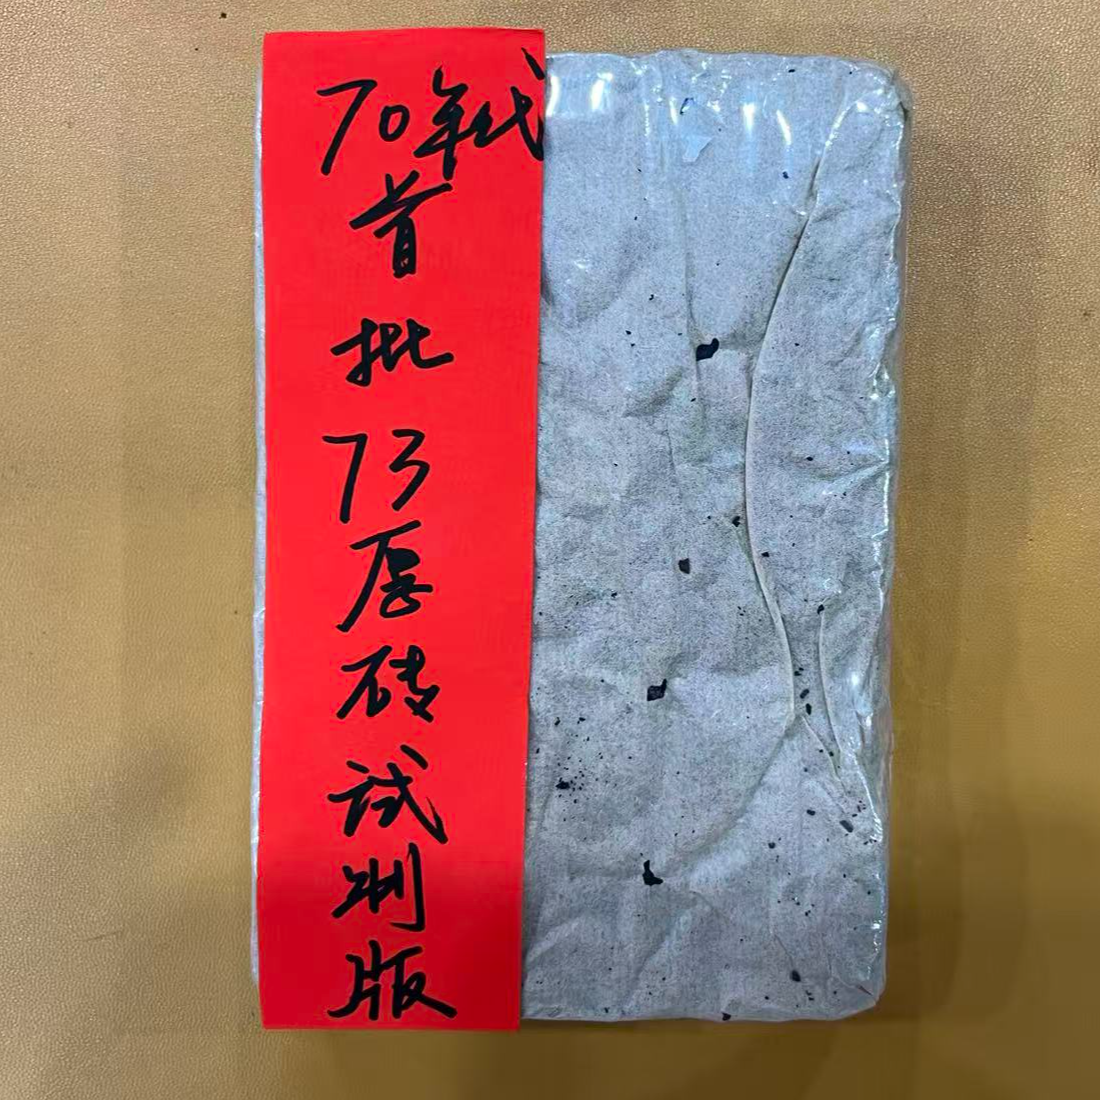 70年代
首批73厚砖试制版